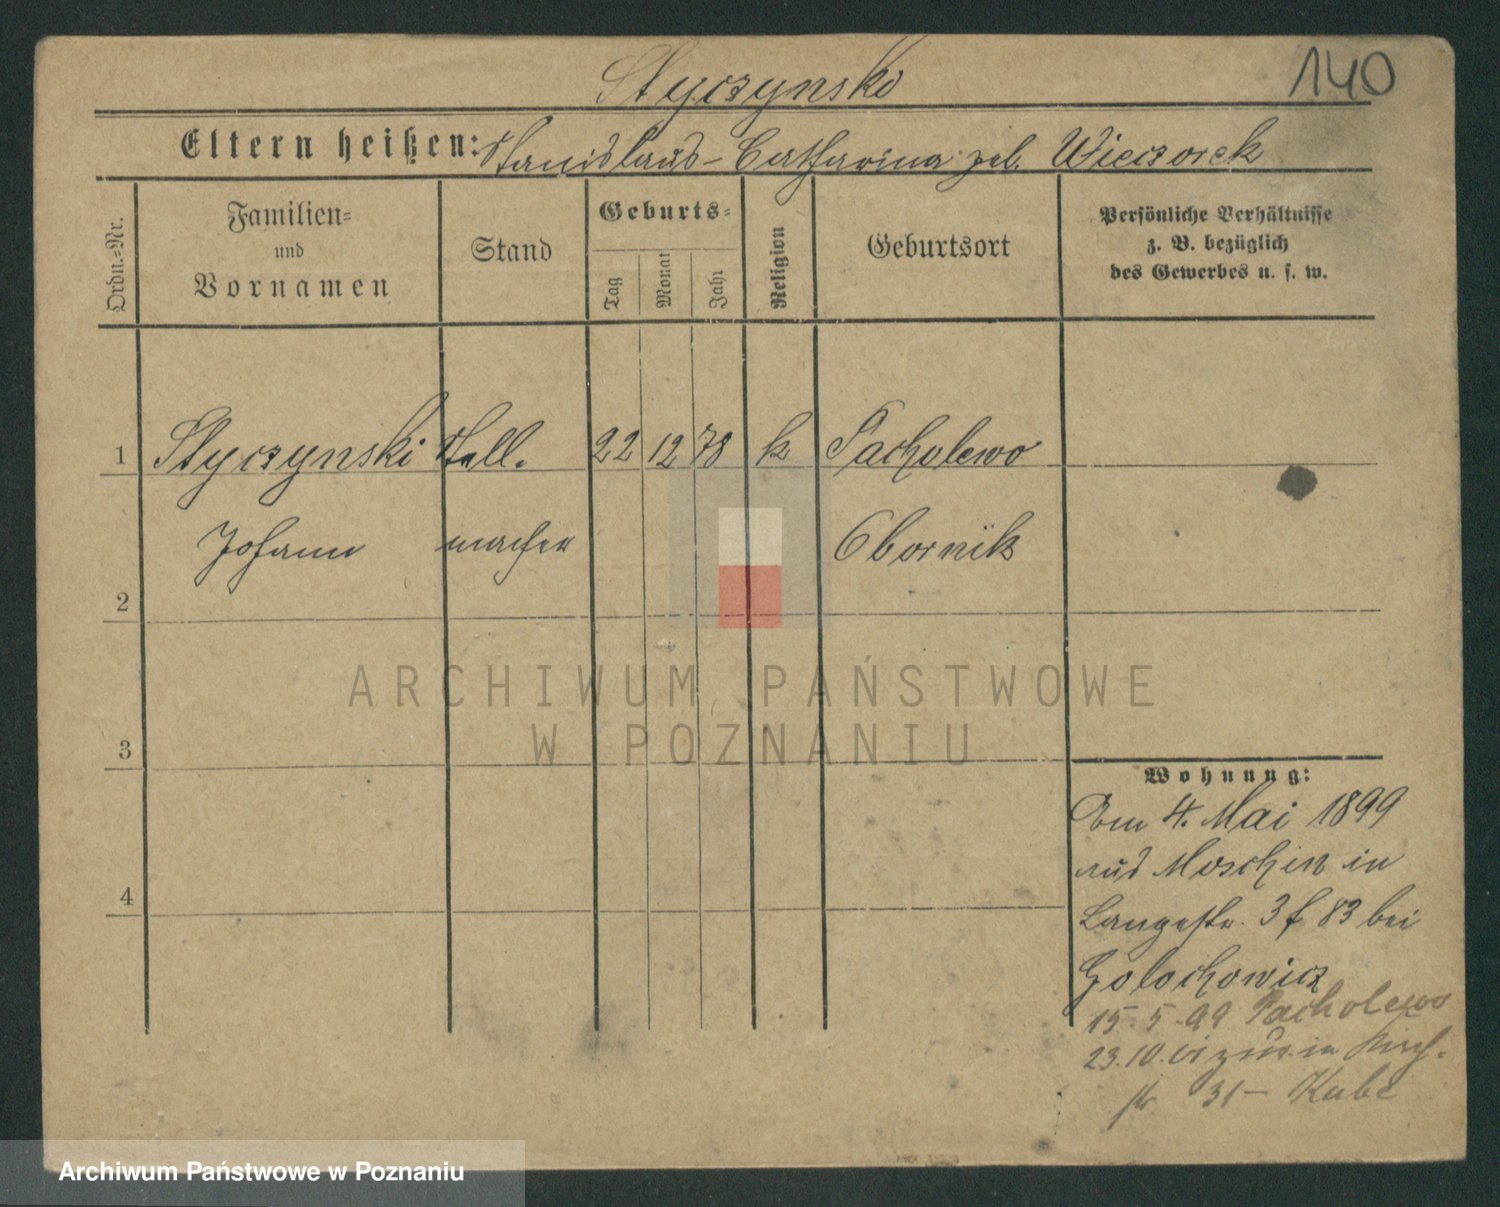 140
Styczynski
Eltern heißen: Stanislaus - Catharina geb. Wieczorek
Ordn.-Nr.
Familien-
und
Vornamen
Stand
Geburts-
Tag
Monat
Jahr
Religion
Geburtsort
Persönliche Verhältnisse
z. B. bezüglich
des Gewerbes u. s. w.
1 Styczynski Stell. 22 12 78 k Pacholewo
Johann macher Obornik
2
3
4
ARCHIWUM PAŃSTWOWE
W POZNANIU
Wohnung:
Am 4. Mai 1899
aus Moschin in
Langestr. 3 f 83 bei
Golochowicz
15-5-99 Pacholewo
23.10. zur. in Kirch-
str 31 - Kube
Archiwum Państwowe w Poznaniu